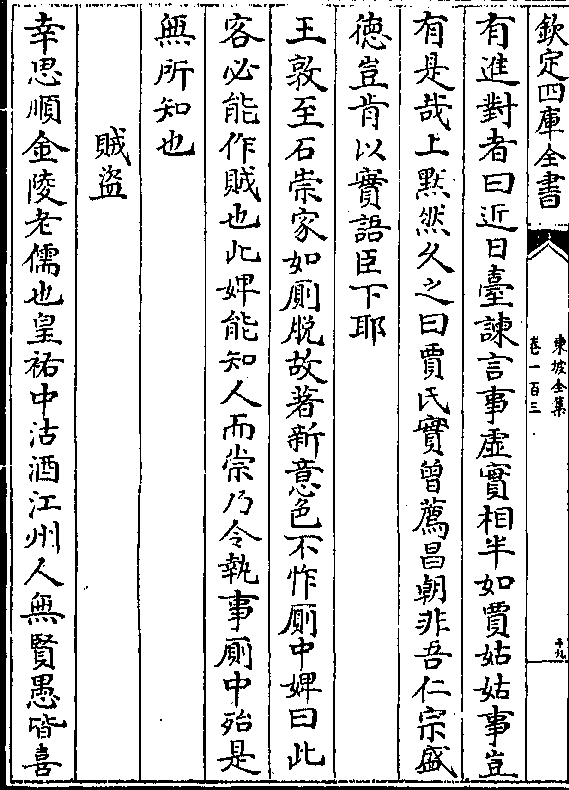 欽定四庫全書
東坡全集
卷一百三
十九
有進對者曰近日臺諫言事虛實相半如賈姑姑事豈
有是哉上默然久之曰賈氏實曾薦昌朝非吾仁宗盛
德豈肯以實語臣下耶
王敦至石崇家如厠脫故著新意色不怍厠中婢曰此
客必能作賊也此婢能知人而崇乃令執事厠中殆是
無所知也
賊盜
幸思順金陵老儒也皇祐中沽酒江州人無賢愚皆喜